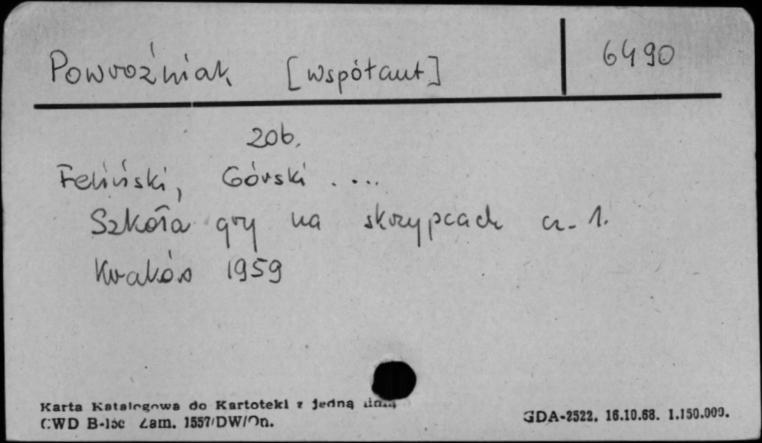 Powroźniak [współaut] 6490
zob.
Feliński, Górski ....
Szkoła gry na skrzypcach cz. 1.
Kraków 1959
Karta Katalogowa do Kartoteki z jedną linią
CWD B-15c Zam. 1557/DW/On.
GDA-2522. 16.10.68. 1.150.000.